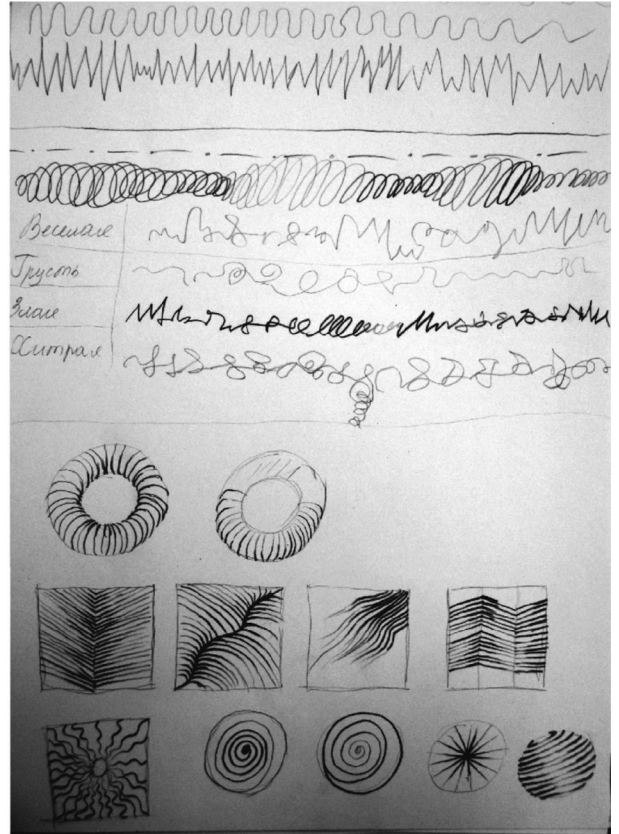 Веселая
Грусть
Злая
Хитрая